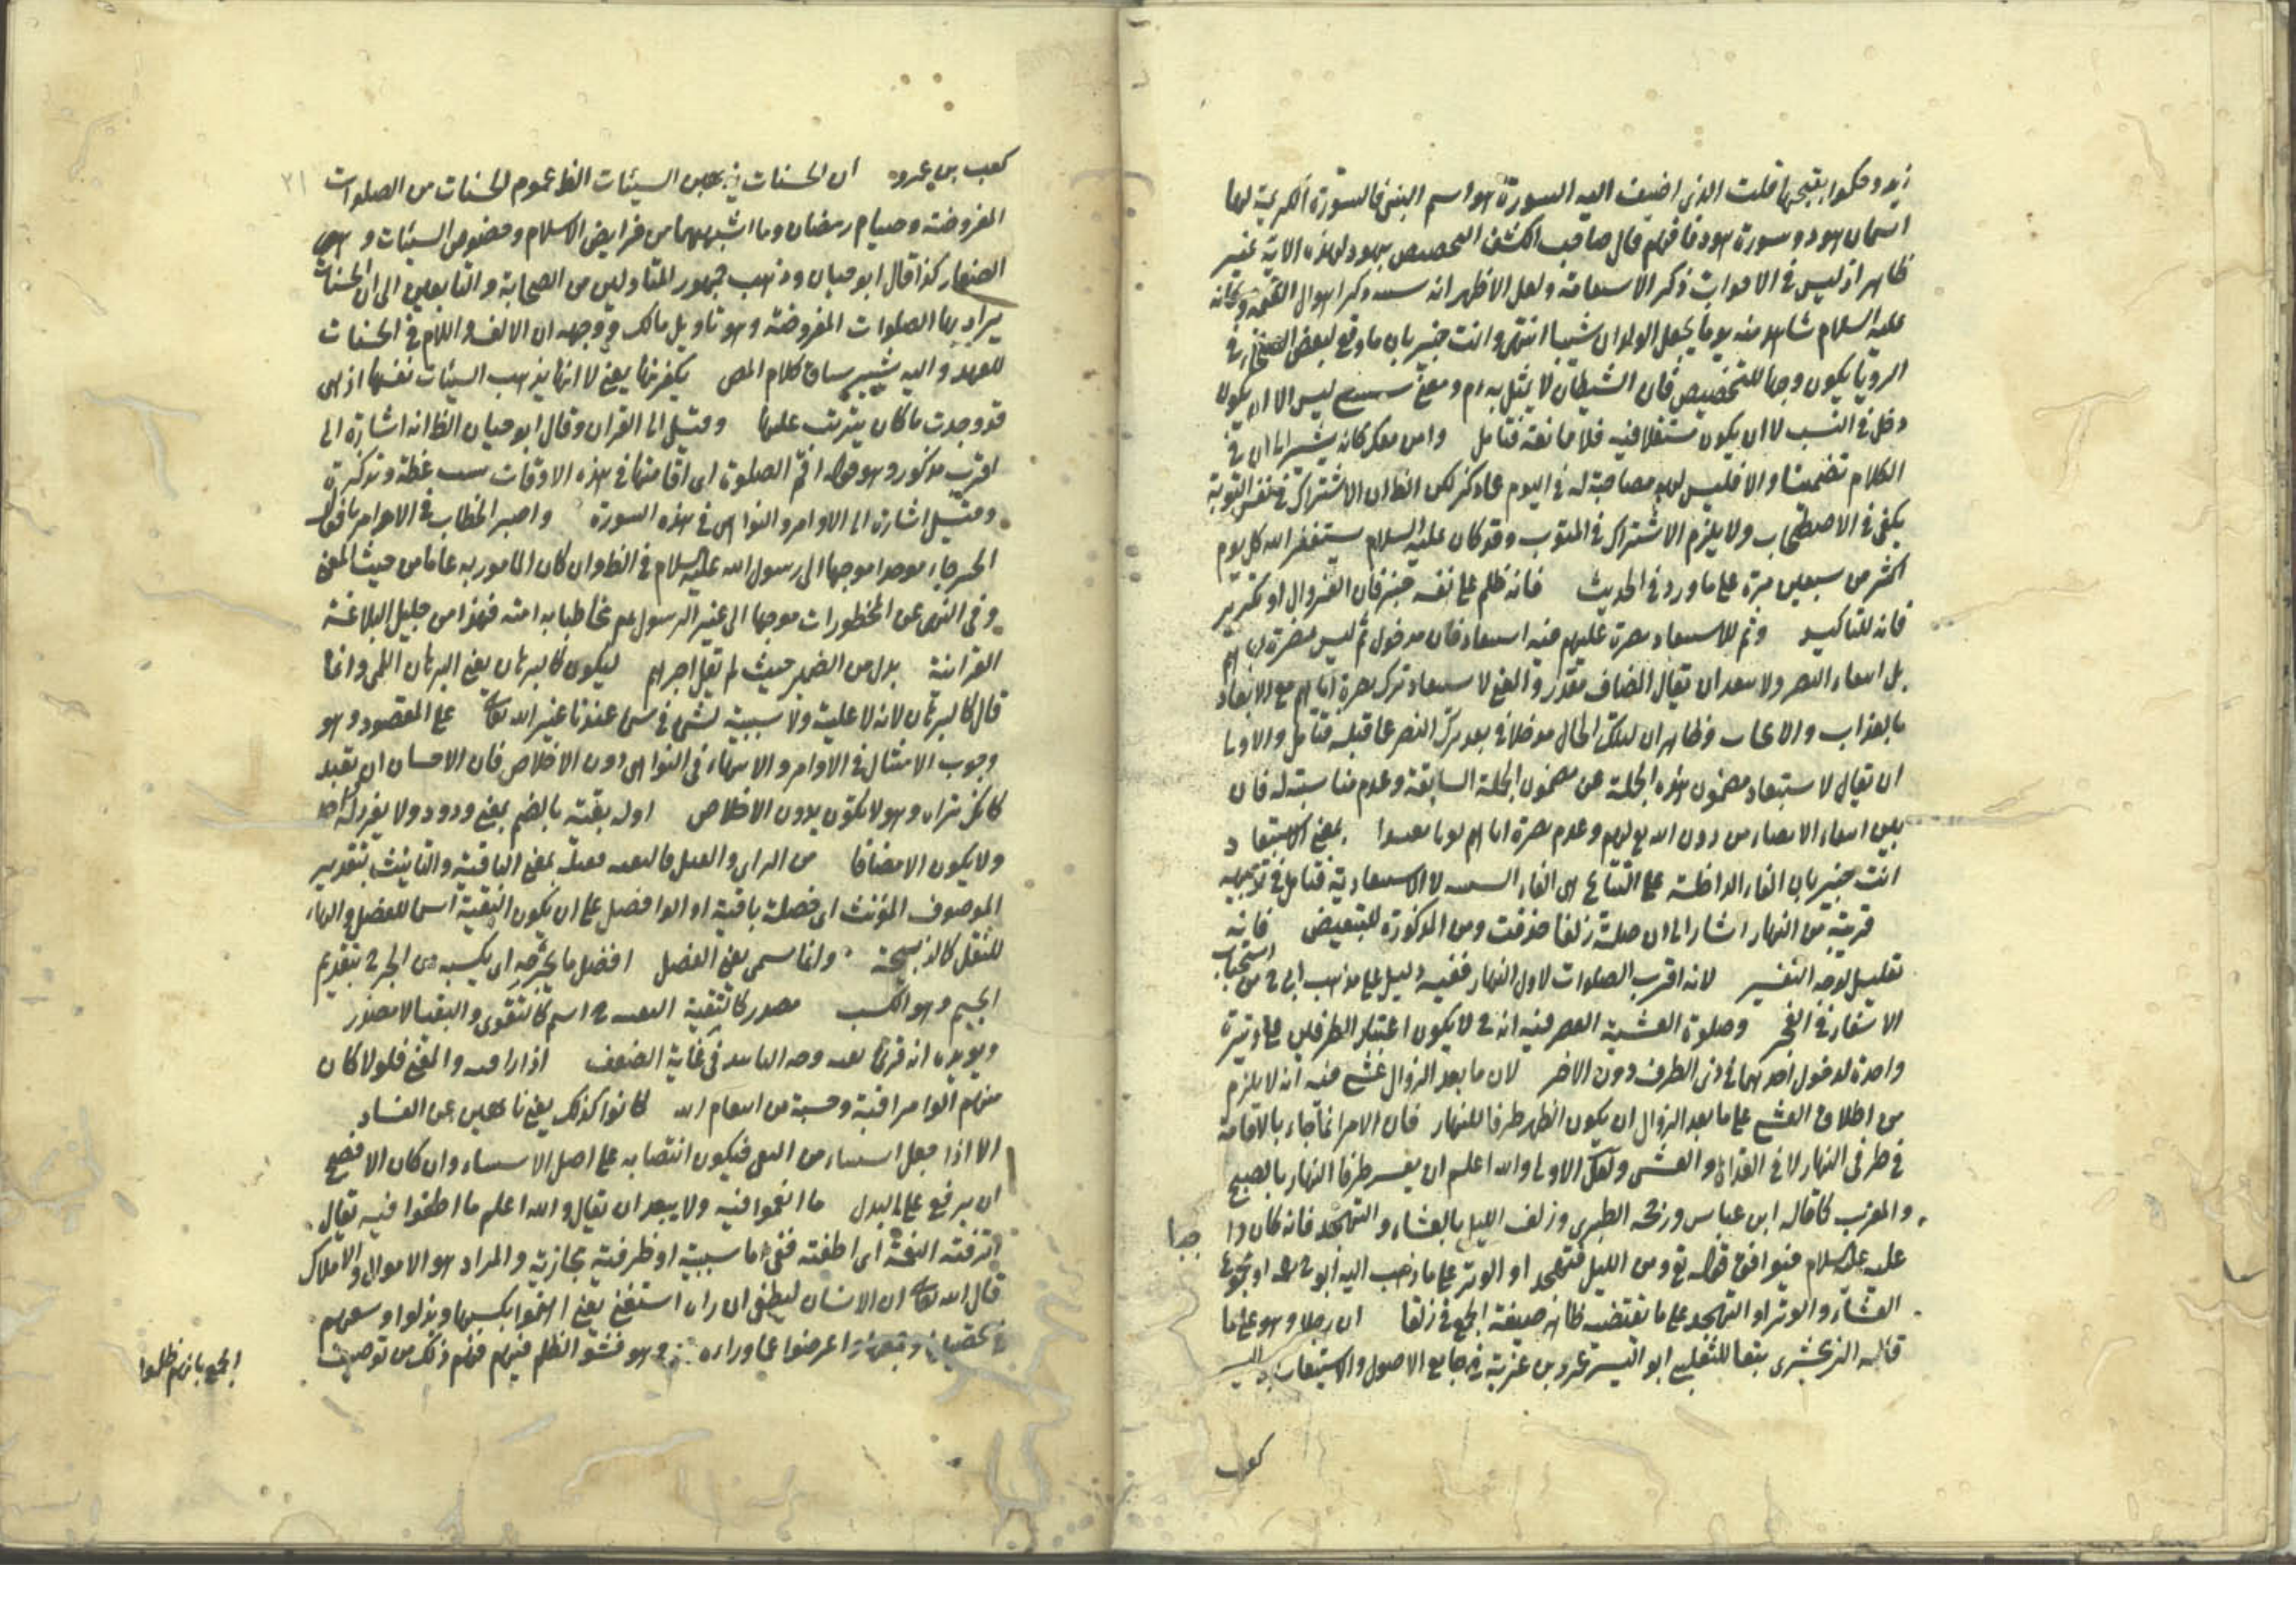 زيد وحكموا بقبحها قلت الذي اضيف اليه السورة هو اسم النبي فالسورة الكريمة لها
اسمان هود وسورة هود فافهم قال صاحب الكشف التخصيص بهود لهذه الاية غير
ظاهر اذ ليس في الاخوات ذكر الاستقامة ولعل الاظهر انه ذكر اهوال القيمة وكانه
عليه السلام شاهد منه يوما يجعل الولدان شيبا انتهى وانت خبير بان ما وقع لبعض في
الرويا يكون وجها للتخصيص فان الشيطان لا يتمثل به ام ومعنى ليس الا ان يكون لا
دخل في الشيب لا ان يكون مستقلا فيه فلا ممانعة فتامل وامن معك كانه يشير الى ان في
الكلام تضمينا والا فليس لهم مصاحبة له في اليوم عاد كفر لكن الظ ان الاشتراك في نفس التوبة
يكفي في الاصطحاب ولا يلزم الاشتراك في المتوب وقد كان عليه السلام يستغفر الله كل يوم
اكثر من سبعين مرة على ما ورد في الحديث فانه ظلم على نفسه
فانه للتاكيد وثم للاستبعاد نصرة عليهم فيه استبعاد فان مدخول ثم ليس نصرة لهم
بل انتفاء النصر ولا يبعد ان يقال المضاف مقدر والمعنى لاستبعاد ترك نصرة اياهم مع الابعاد
بالعذاب والايجاب وظاهر ان لتلك الحال مدخلا في بعد ترك النصر عما قبله فتامل والاولى
ان يقال لاستبعاد مضمون هذه الجملة عن مضمون الجملة السابقة وعدم مناسبته له فان
بين انتفاء الانصار من دون الله لهم وعدم نصرة اياهم بمعنى الاستبعاد
انت خبير بان الفاء الداخلة على النتائج هي الفاء السببية لا الاستبعادية فتامل في توجيهه
قريبة من النهار اشار الى ان صلة زلفا حذفت ومن المذكورة للتبعيض فانه
تعليل لوجه التفسير لانه اقرب الصلوات لاول النهار ففيه دليل على مذهب ابي ح من استحباب
الاسفار في الفجر وصلوة العشية العصر فيه انه ح لا يكون اعتبار الطرفين على وتيرة
واحدة لدخول احدهما في ذي الطرف دون الاخر لان ما بعد الزوال عشي فيه انه لا يلزم
من اطلاق العشي على ما بعد الزوال ان يكون الظهر طرفا للنهار فان الامر انما جاء بالاقامة
في طرفي النهار لا في الغداة والعشي ولعل الاولى والله اعلم ان يفسر طرفا النهار بالصبح
والمغرب كما قاله ابن عباس ورجحه الطبري وزلف الليل بالعشاء والتهجد فانه كان واجبا
عليه عليه السلام فيوافق قوله تع ومن الليل فتهجد او الوتر على ما ذهب اليه ابو ح او مجموع
العشاء والوتر او التهجد على ما يقتضيه ظاهر صيغة الجمع في زلفا ان رجلا وهو على ما
قاله الزمخشري تبعا للثعلبي ابو اليسر عمرو بن غزية في جامع الاصول والاستيعاب
كعب
٢١
كعب بن عمرو ان الحسنات يذهبن السيئات الظ عموم الحسنات من الصلوات
المفروضة وصيام رمضان وما اشبههما من فرايض الاسلام وخصوص السيئات وهي
الصغار كذا قال ابو حيان وذهب جمهور المتاولين من الصحابة والتابعين الى ان الحسنات
يراد بها الصلوات المفروضة وهو تاويل مالك ووجهه ان الالف واللام في الحسنات
للعهد واليه يشير سياق كلام المص يكفرنها يعني لا انها يذهب السيئات نفسها اذ هي
قد وجدت ما كان يترتب عليها وقيل الى القران وقال ابو حيان الظ انه اشارة الى
اقرب مذكور وهو قوله اقم الصلوة اي اقامتها في هذه الاوقات سبب عظة وتذكرة
وقيل اشارة الى الاوامر والنواهي في هذه السورة واصبر الخطاب في الاوامر بافعال
الخير جاء موحدا موجها الى رسول الله عليه السلام في الظ وان كان المامور به عاما من حيث المعنى
وفي النهي عن المحظورات موجها الى غير الرسول عم مخاطبا به امته فهذا من جليل البلاغة
القرانية بدل من الضمير حيث لم يقل اجرهم ليكون كالبرهان يعني البرهان اللمي وانما
قال كالبرهان لانه لا علية ولا سببية لشي في شي عندنا غير الله تعالى على المقصود وهو
وجوب الامتثال في الاوامر والانتهاء في النواهي دون الاخلاص فان الاحسان ان تعبد
كانك تراه وهو لا يكون بدون الاخلاص اولو بقية بالضم بمعنى ذوو ولا يفرد له واحد
ولا يكون الا مضافا من الراي والعقل فالبقية فعيلة بمعنى الباقية والتانيث بتقدير
الموصوف المؤنث اي خصلة باقية او اولوا فضل على ان يكون البقية اسما للفضل والهاء
للنقل كالذبيحة وانما سمي يعني الفضل افضل ما يجرحه اي يكسبه من الجرح بتقديم
الجيم وهو الكسب مصدر كالتقية البقية ح اسم كالتقوى والبقيا لا مصدر
ويويده انه قرئ بقية وجه التاييد في غاية الضعف اذا راقبه والمعنى فلولا كان
منهم اولوا مراقبة وخشية من انتقام الله كانوا كذلك يعني ناهين عن الفساد
الا اذا جعل استثناء من النفي فيكون انتصابه على اصل الاستثناء وان كان الافصح
ان يرفع على البدل ما انعموا فيه ولا يبعد ان يقال والله اعلم ما اطغوا فيه يقال
اترفته النعمة اي اطغته ففي اما سببية او ظرفية مجازية والمراد هو الاموال والاملاك
قال الله تعالى ان الانسان ليطغى ان راه استغنى يعني اهتموا بكسبها وبذلوا وسعهم
في تحصيل اعرضوا عما وراءه وهو فشو الظلم فيهم فهم ذلك من توصيف
الجمع بانهم ظلموا